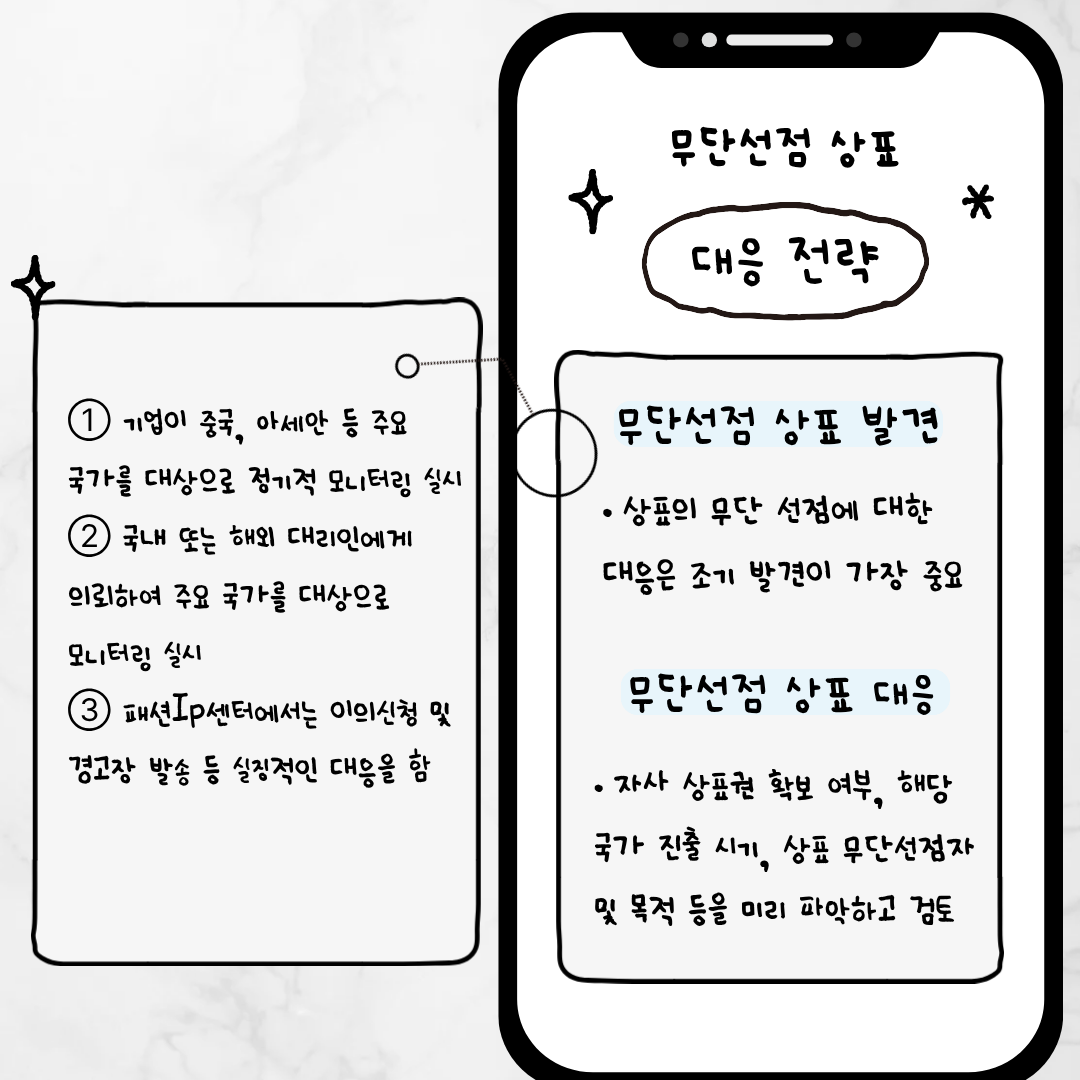 무단선점 상표
대응 전략
무단선점 상표 발견
• 상표의 무단 선점에 대한
대응은 조기 발견이 가장 중요
무단선점 상표 대응
• 자사 상표권 확보 여부, 해당
국가 진출 시기, 상표 무단선점자
및 목적 등을 미리 파악하고 검토
① 기업이 중국, 아세안 등 주요
국가를 대상으로 정기적 모니터링 실시
② 국내 또는 해외 대리인에게
의뢰하여 주요 국가를 대상으로
모니터링 실시
③ 패션Ip센터에서는 이의신청 및
경고장 발송 등 실징적인 대응을 함